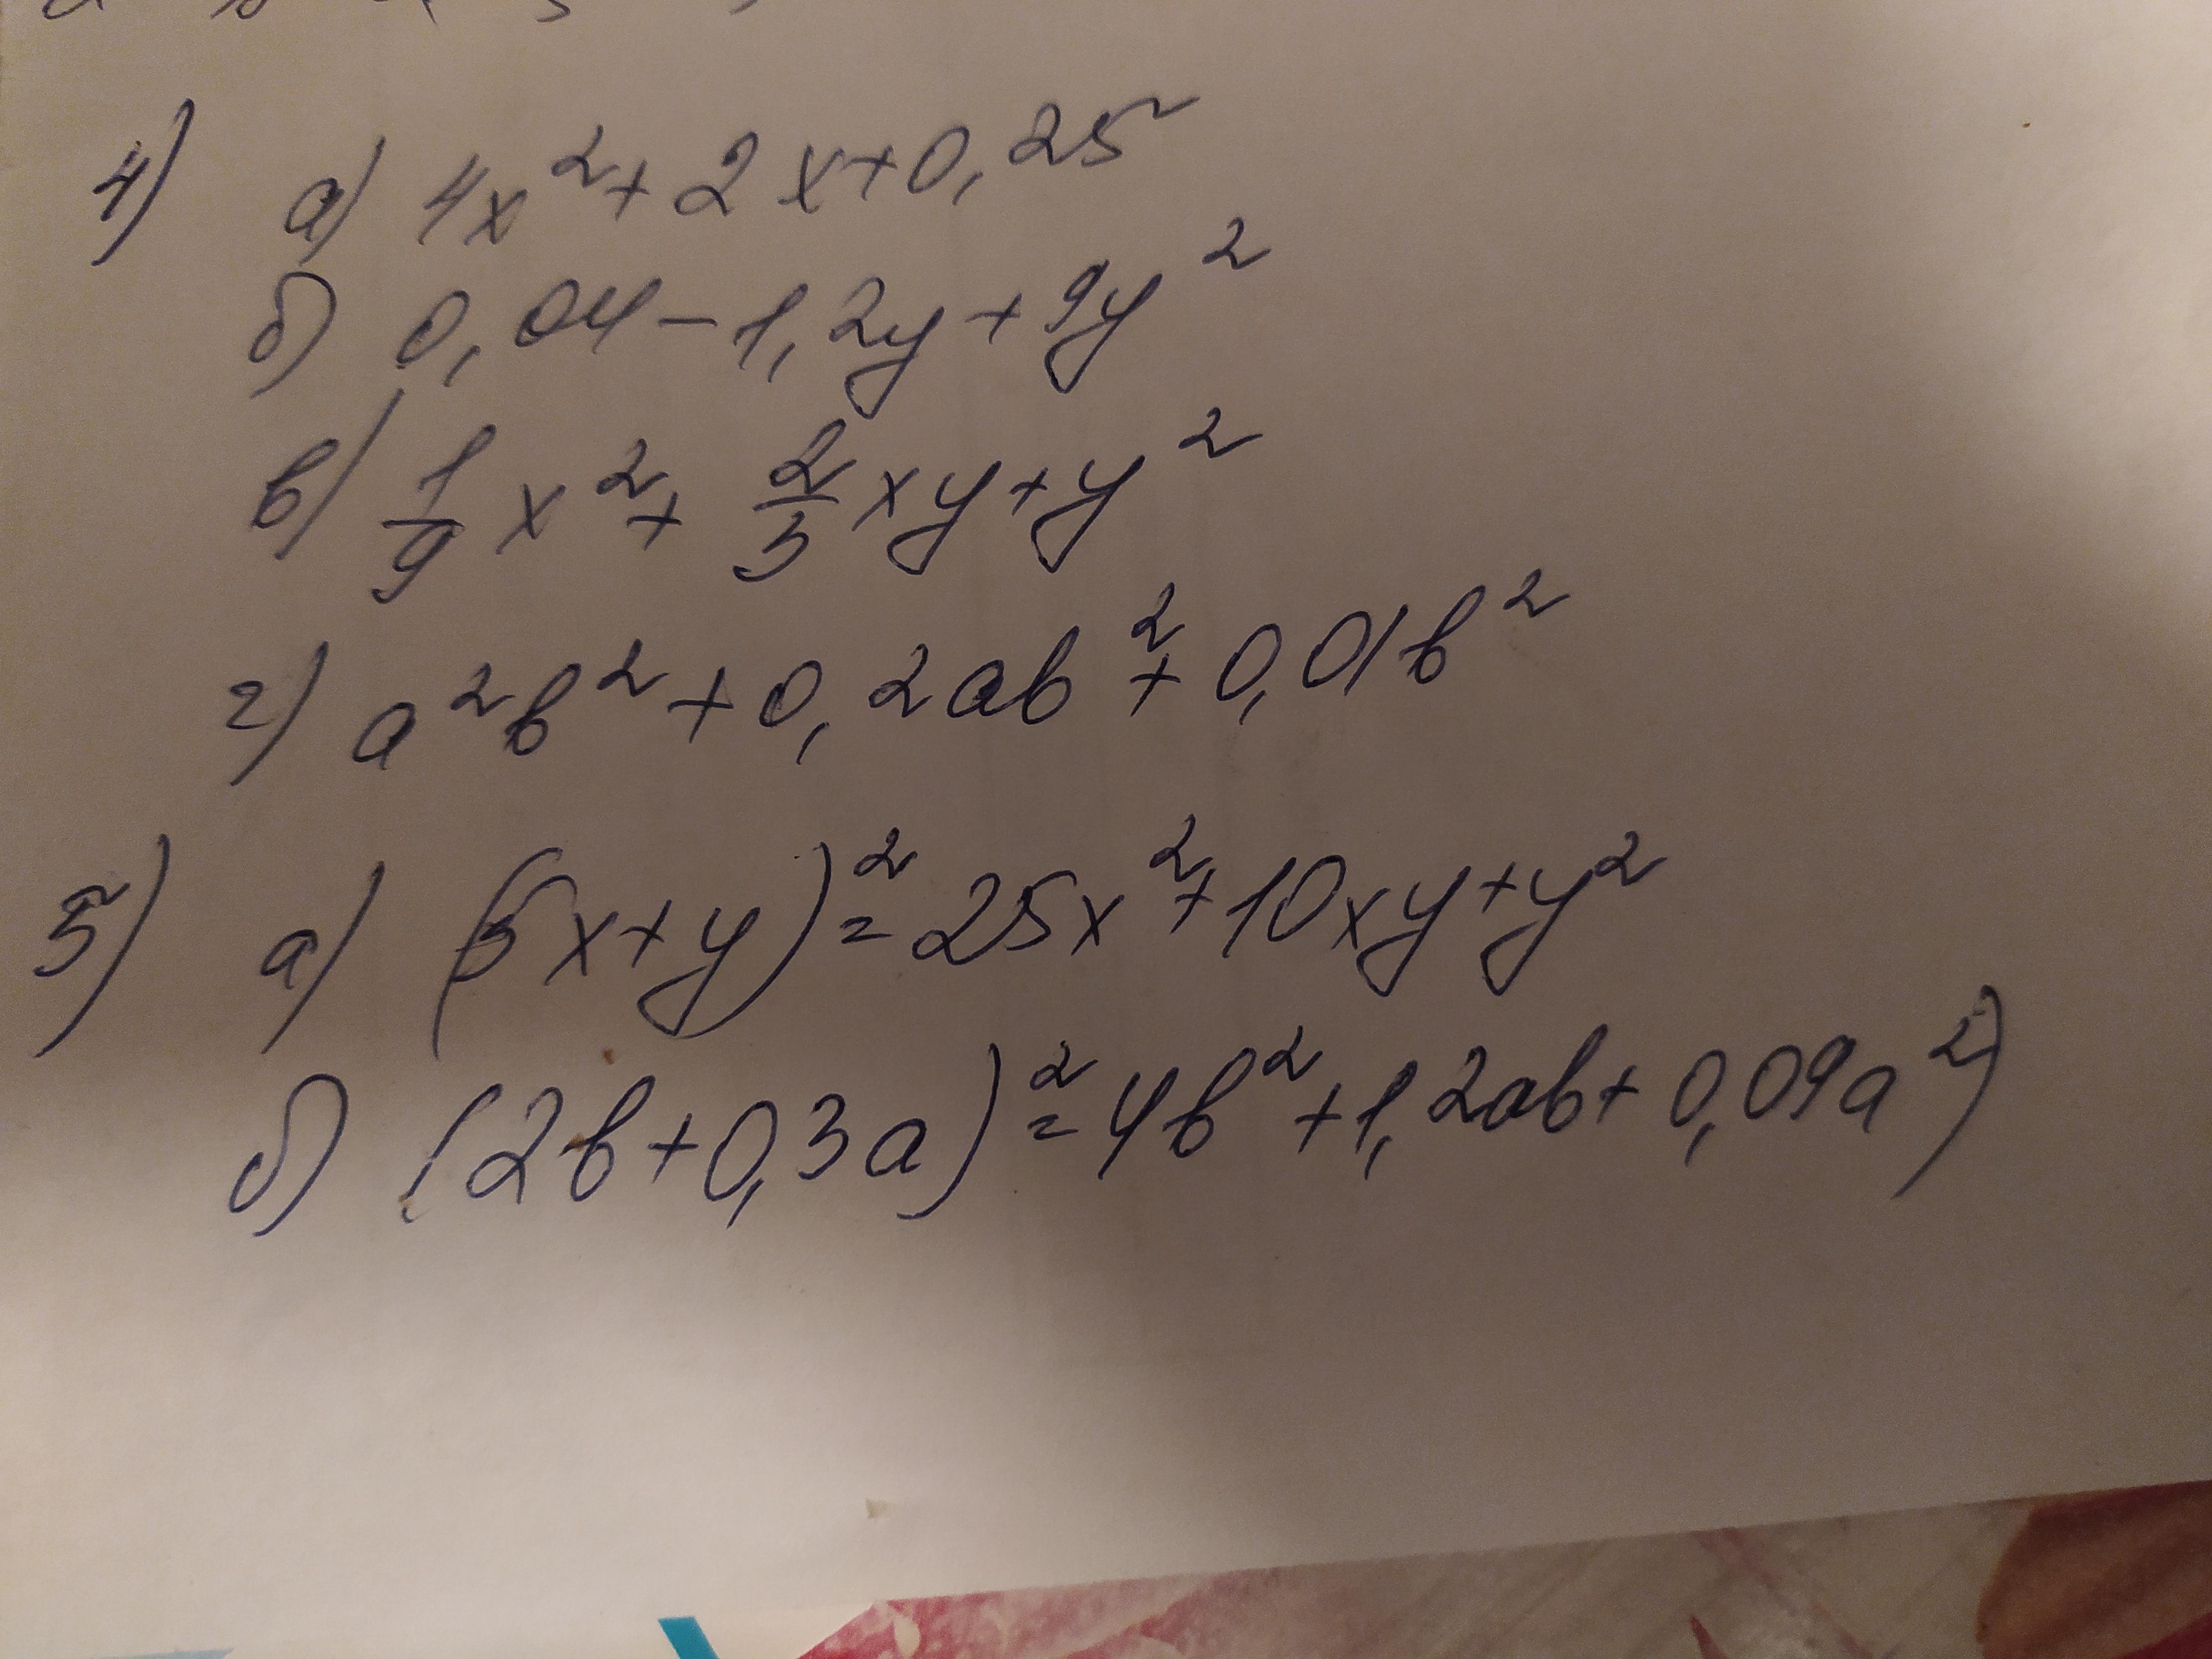 4) а) 4x² + 2x + 0,25
б) 0,04 − 1,2y + 9y²
в) 1/9 x² + 2/3 xy + y²
г) a²b² + 0,2ab² + 0,01b²
5) а) (5x + y)² = 25x² + 10xy + y²
б) (2b + 0,3a)² = 4b² + 1,2ab + 0,09a²)